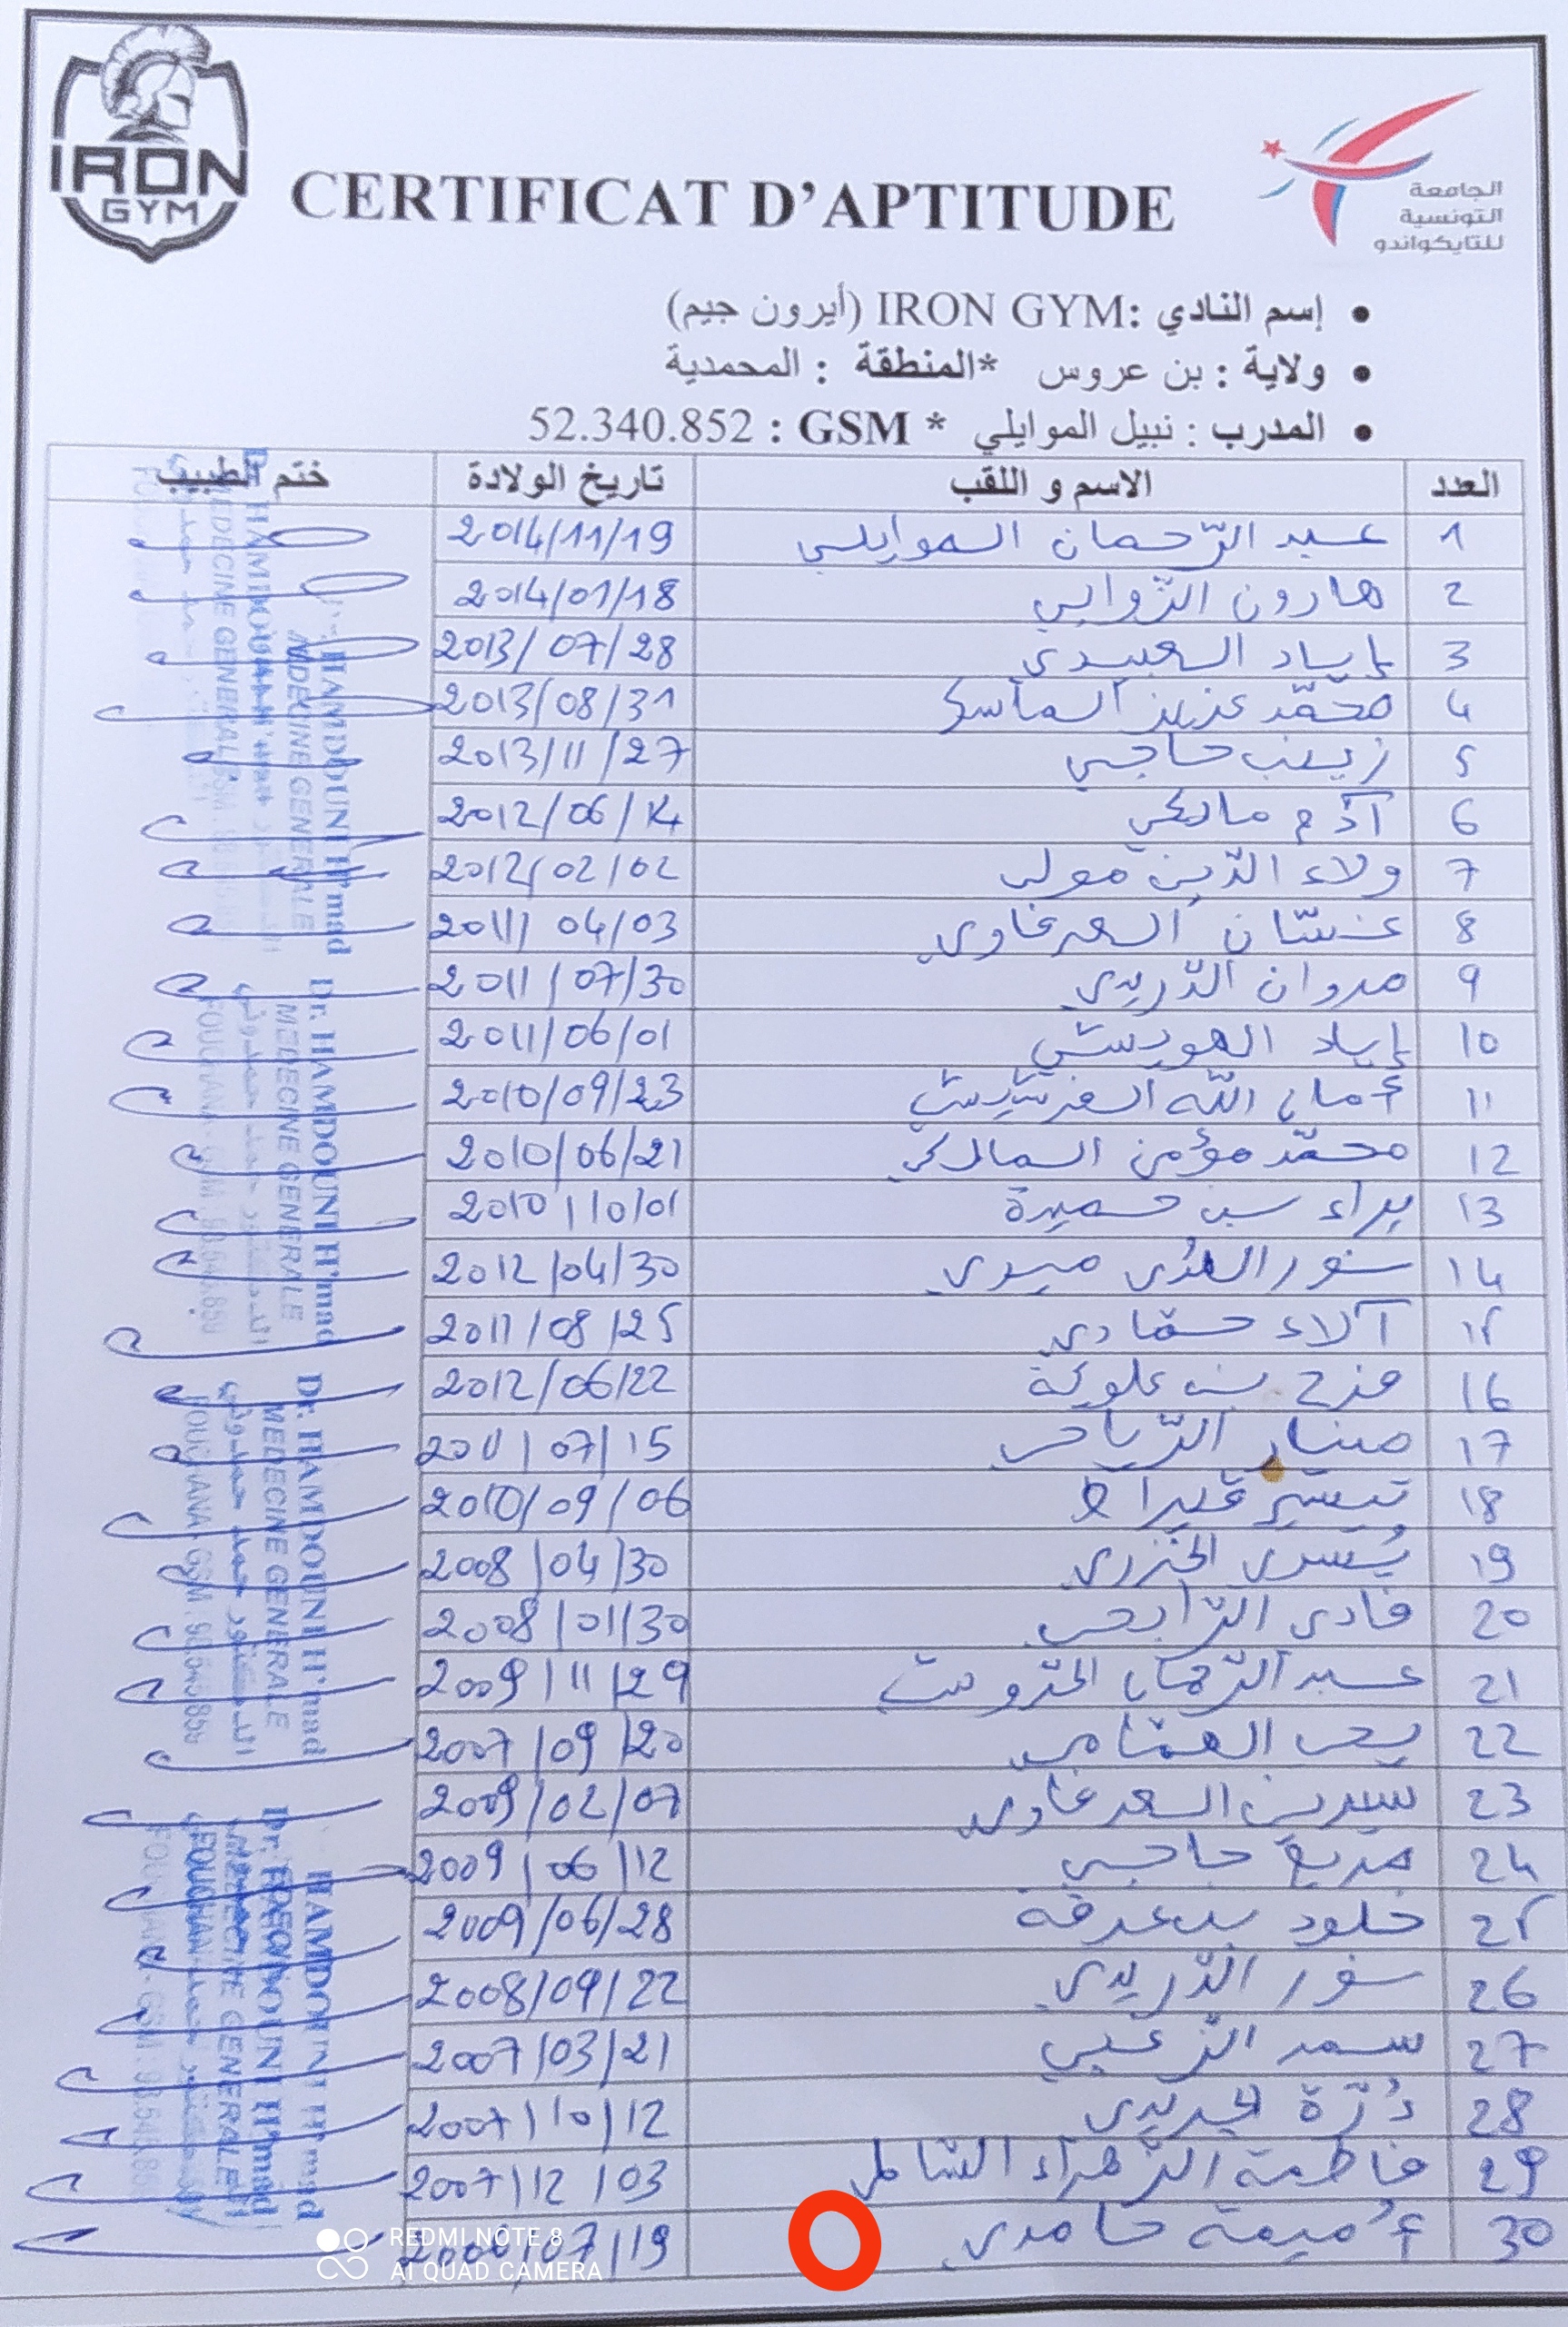 IRON
GYM
CERTIFICAT D'APTITUDE
الجامعة
التونسية
للتايكواندو
• إسم النادي :IRON GYM (أيرون جيم)
• ولاية : بن عروس *المنطقة : المحمدية
• المدرب : نبيل الموايلي * GSM : 52.340.852
العدد الاسم و اللقب تاريخ الولادة ختم الطبيب
1 عبد الرّحمان الموايلي 2014/11/19
2 هارون الزّوابي 2014/01/18
3 إياد العبيدي 2013/07/28
4 محمّد عزيز 2013/08/31
5 زينب حاجي 2013/11/27
6 آدم مالكي 2012/06/14
7 ولاء الدّين مولى 2012/02/02
8 غسّان العرفاوي 2011/04/03
9 مروان الدّريدي 2011/07/30
10 إياد 2011/06/01
11 أمان الله 2010/09/23
12 محمّد مؤمن المالكي 2010/06/21
13 براء بن حميدة 2010/10/01
14 نور الهدى ميري 2012/04/30
15 آلاء حمّادي 2011/08/25
16 فرح بن علوكة 2012/06/22
17 منار الرّياحي 2011/07/15
18 تيسير قيراط 2010/09/06
19 يُسرى الخزري 2008/04/30
20 فادي الرّابحي 2008/01/30
21 عبد الرّحمان 2009/11/29
22 يحي العثماني 2007/09/20
23 سيرين العرفاوي 2009/02/07
24 مريم حاجي 2009/06/12
25 خلود بن عرفة 2009/06/28
26 نور الدّريدي 2008/09/22
27 سمر الزّغبي 2007/03/21
28 دُرّة الجريدي 2007/10/12
29 فاطمة الزّهراء الشّاطر 2007/12/03
30 أُميمة حامدي /07/19
Dr. HAMDOUNI H'mad
MEDECINE GENERALE
Dr. HAMDOUNI H'mad
MEDECINE GENERALE
Dr. HAMDOUNI H'mad
MEDECINE GENERALE
الدكتور حمد حمدوني
Dr. HAMDOUNI H'mad
MEDECINE GENERALE
الدكتور حمد حمدوني
REDMI NOTE 8
AI QUAD CAMERA